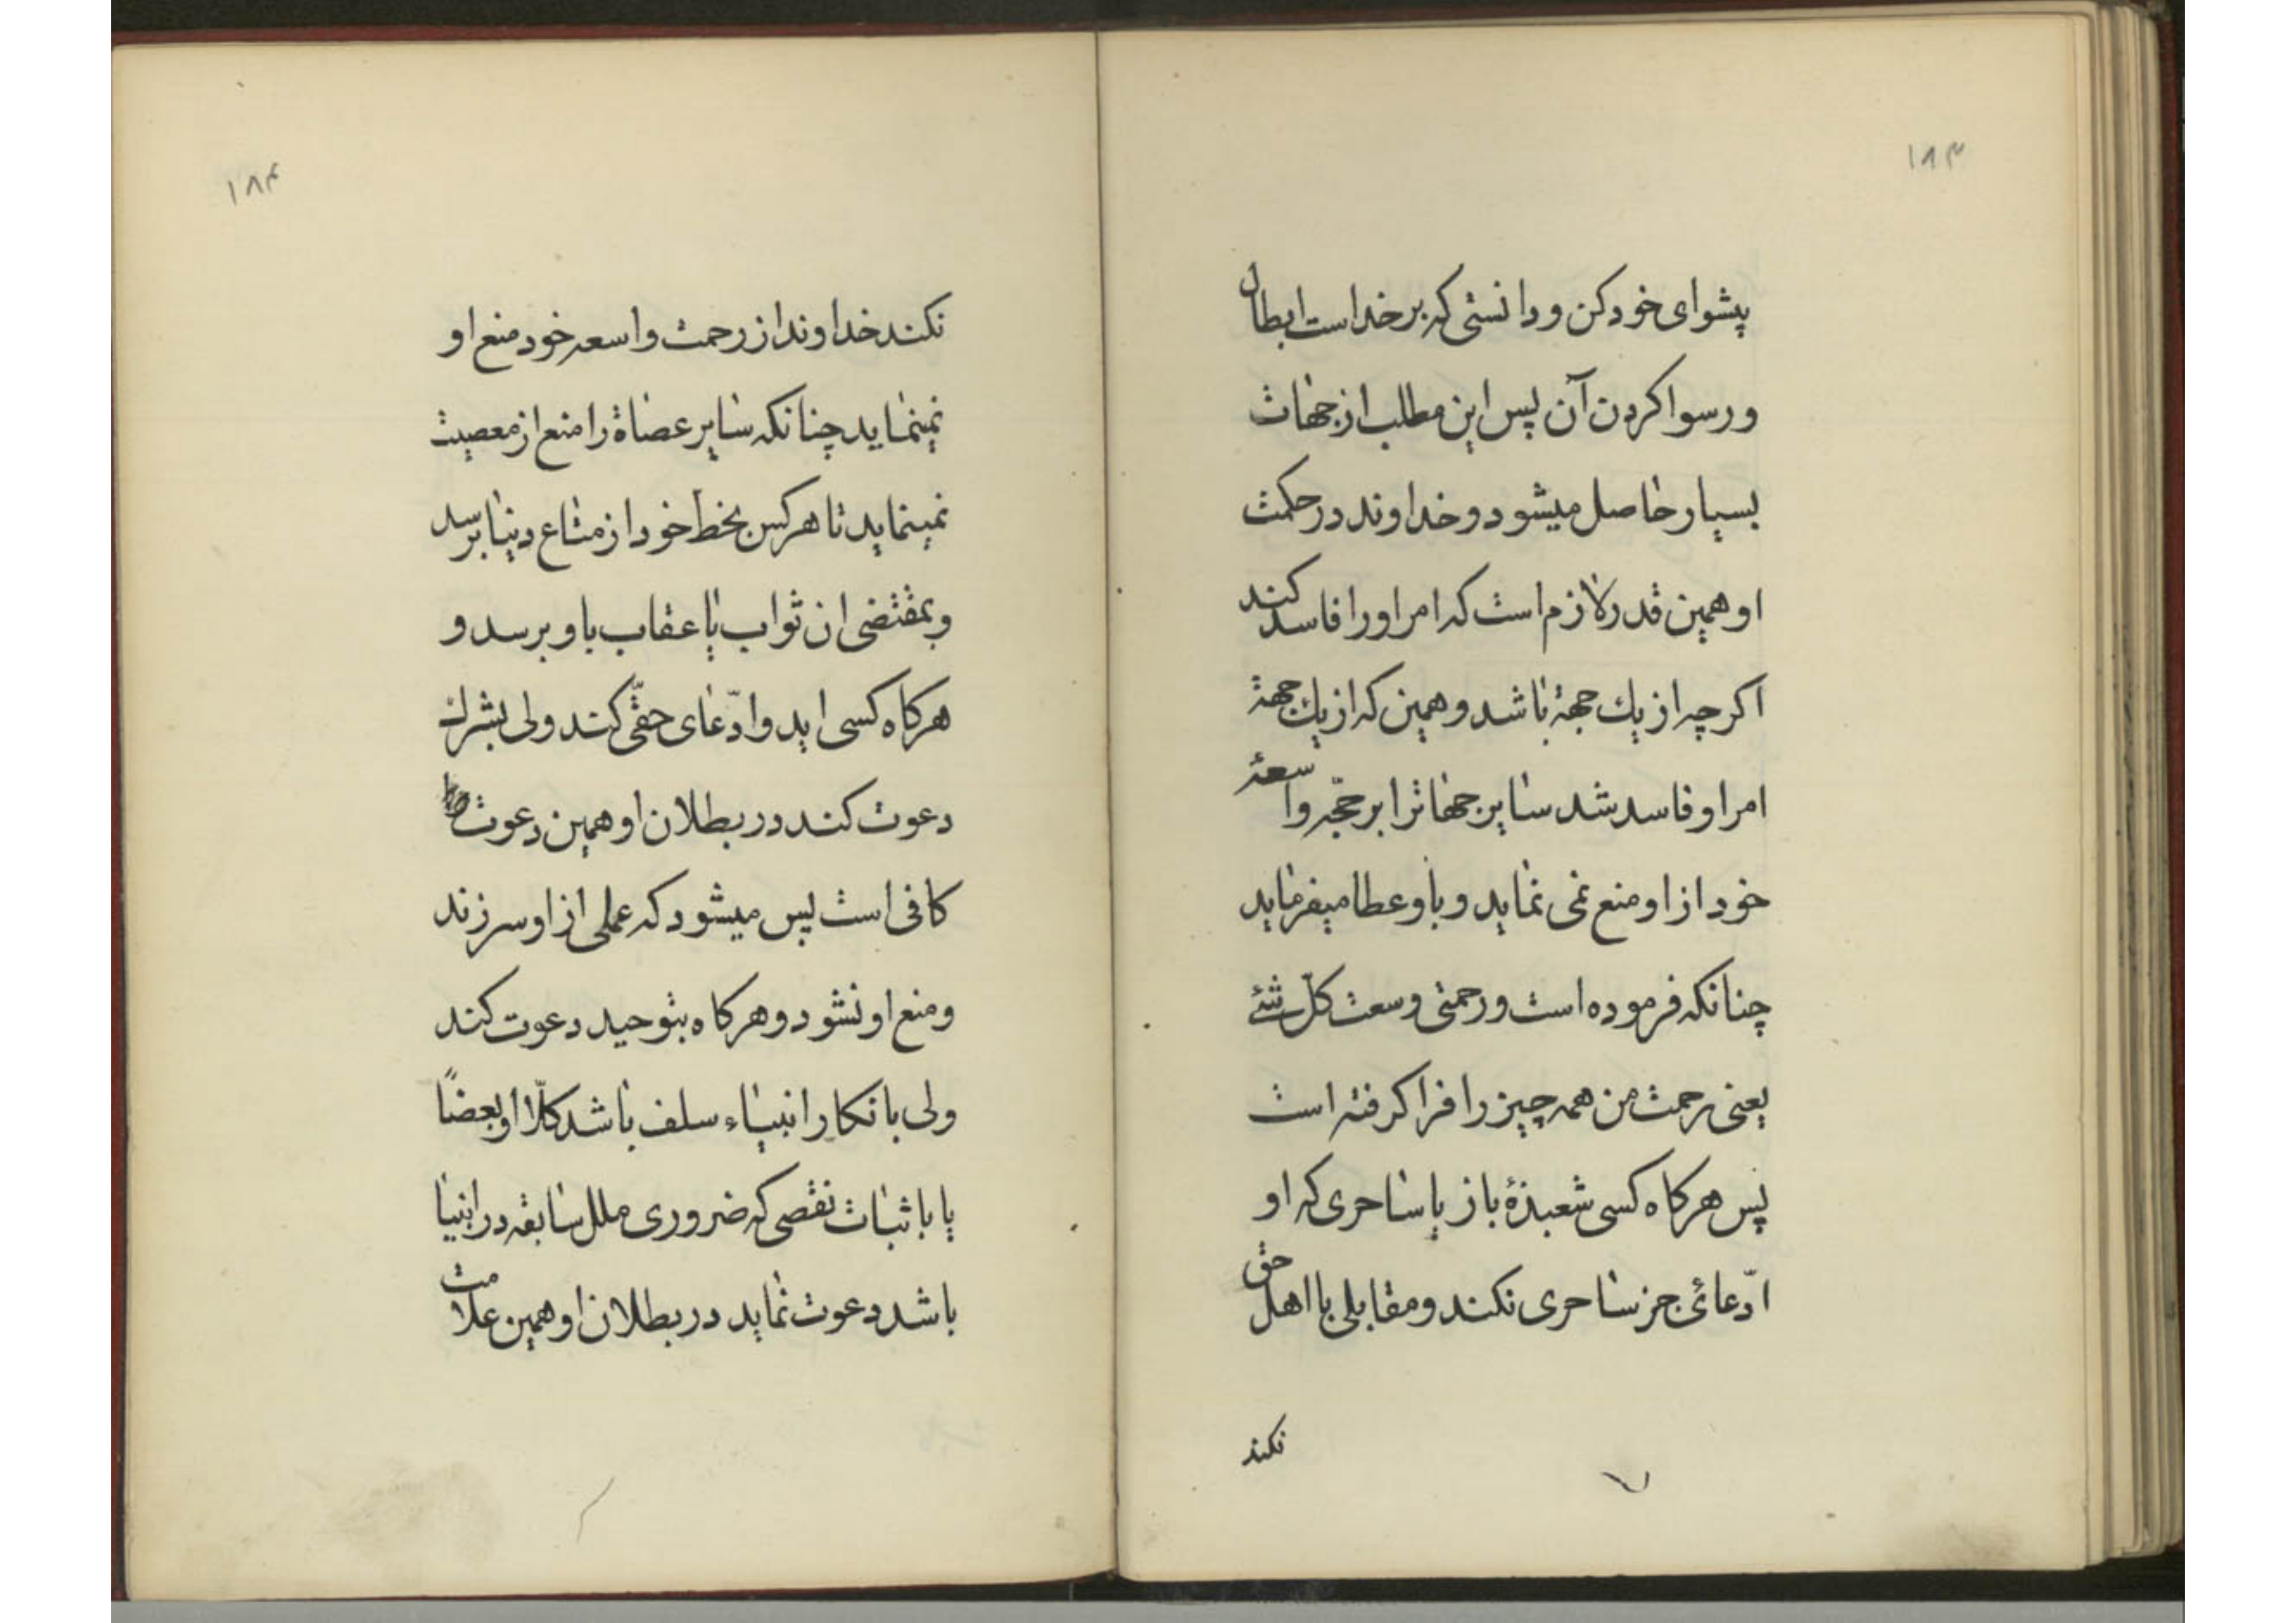 ۱۸۳
پیشوای خود کن و دانستی که بر خداست ابطال
و رسوا کردن آن پس این مطلب از جهات
بسیار حاصل میشود و خداوند در حکمت
او همین قدر لازم است که امر او را فاسد کند
اکرچه از یك جهة باشد و همین که از یك جهة
امر او فاسد شد سایر جهاترا بر حجّه واسعهٔ
خود از او منع نمی نماید و باو عطا میفرماید
چنانکه فرموده است و رحمتی وسعت کلّ شئ
یعنی رحمت من همه چیز را فرا کرفته است
پس هرکاه کسی شعبذهٔ باز یا ساحری که او
ادّعائی جز ساحری نکند و مقابلی با اهل حق
نکند
۱۸۴
نکند خداوند از رحمت واسعه خود منع او
نمینماید چنانکه سایر عصاة را منع از معصیت
نمینماید تا هر کس بخطّ خود از متاع دنیا برسد
و بمقتضی ان ثواب یا عقاب باو برسد و
هرکاه کسی اید و ادّعای حقّی کند ولی بشرك
دعوت کند در بطلان او همین دعوت
کافی است پس میشود که عملی از او سر زند
و منع او نشود و هرکاه بتوحید دعوت کند
ولی بانکار انبیاء سلف باشد کلّا او بعضًا
یا باثبات نقصی که ضروری ملل سابقه در انبیا
باشد دعوت نماید در بطلان او همین علامت